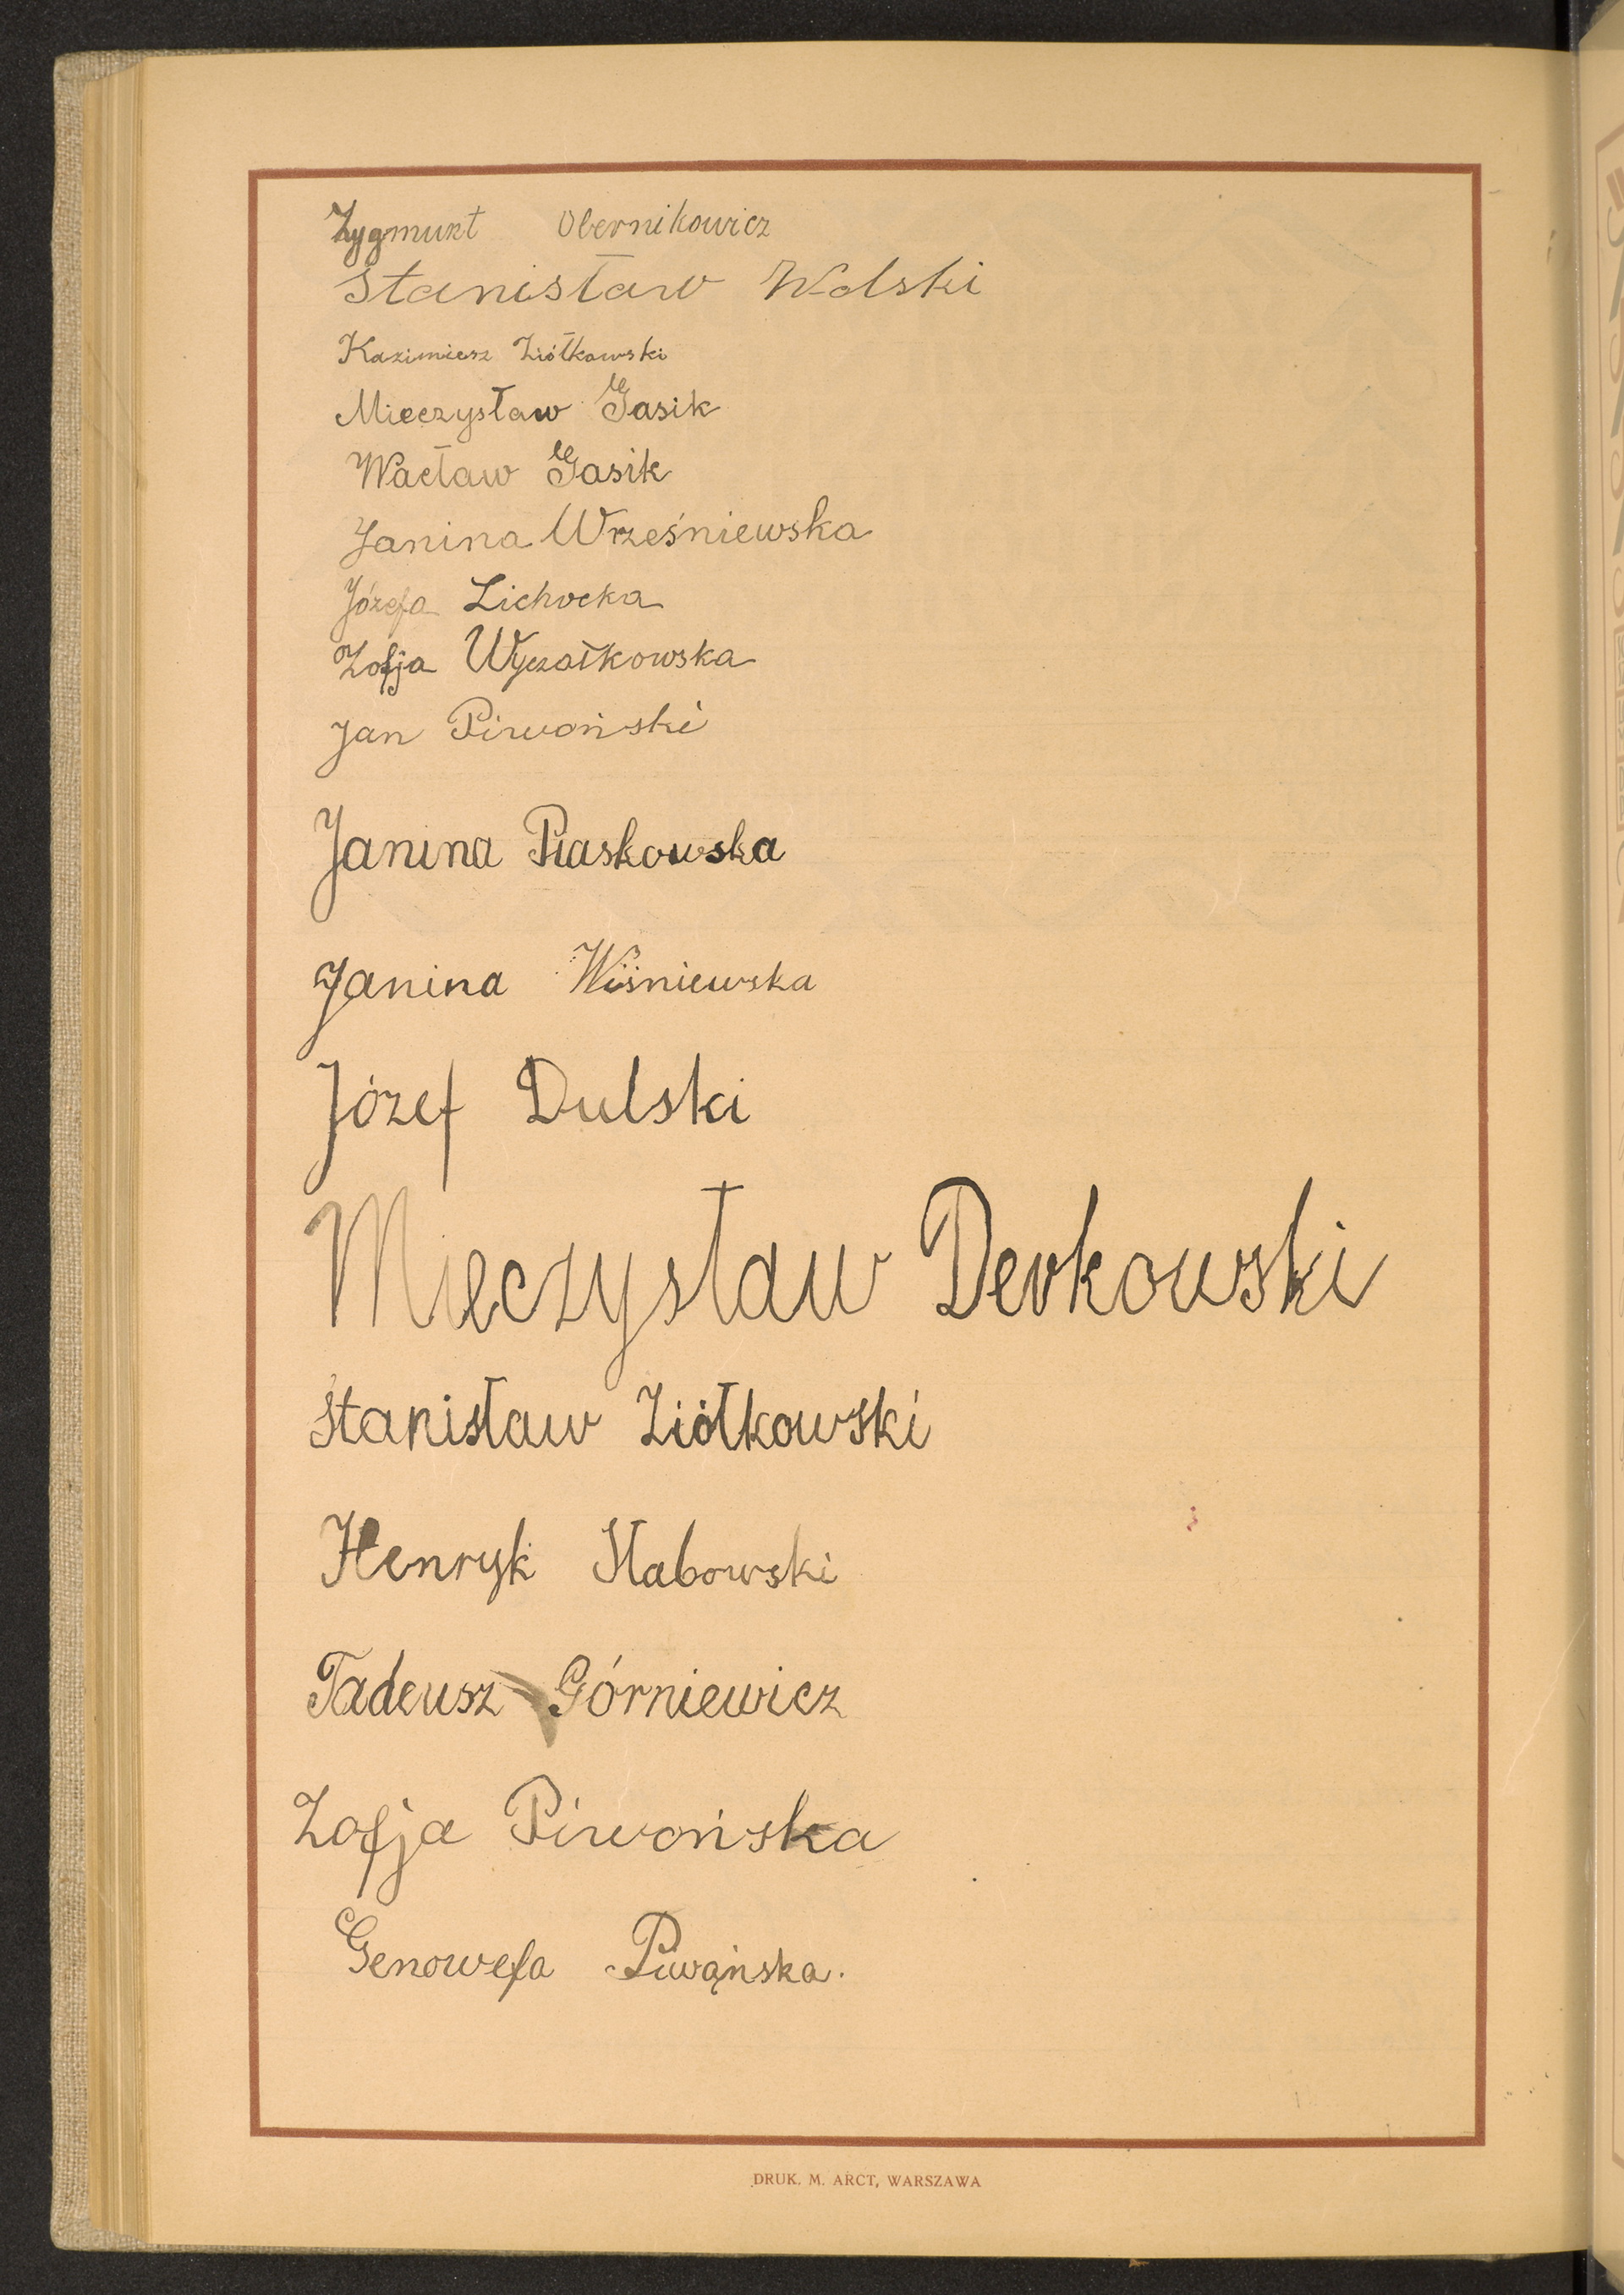 Zygmunt Obernikowicz
Stanisław Wolski
Kazimiesz Ziółkowski
Mieczysław Gasik
Wacław Gasik
Janina Wrześniewska
Józefa Lichocka
Zofja Wyczałkowska
Jan Piwoński
Janina Piaskowska
Janina Wiśniewska
Józef Dulski
Mieczysław Derkowski
Stanisław Ziółkowski
Henryk Słabowski
Tadeusz Górniewicz
Zofja Piwońska
Genowefa Piwąńska.
DRUK. M. ARCT, WARSZAWA